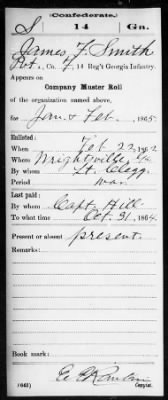 (Confederate.)
S 14 Ga.
James F. Smith
Pvt., Co. F, 14 Reg't Georgia Infantry.
Appears on
Company Muster Roll
of the organization named above,
for Jan & Feb., 1865.
Enlisted:
When Feb 22, 1862.
Where Wrightville Ga
By whom Lt. Clegg
Period war
Last paid:
By whom Capt. Hill
To what time Oct. 31, 1864.
Present or absent present.
Remarks:
Book mark:
(642) Copyist.